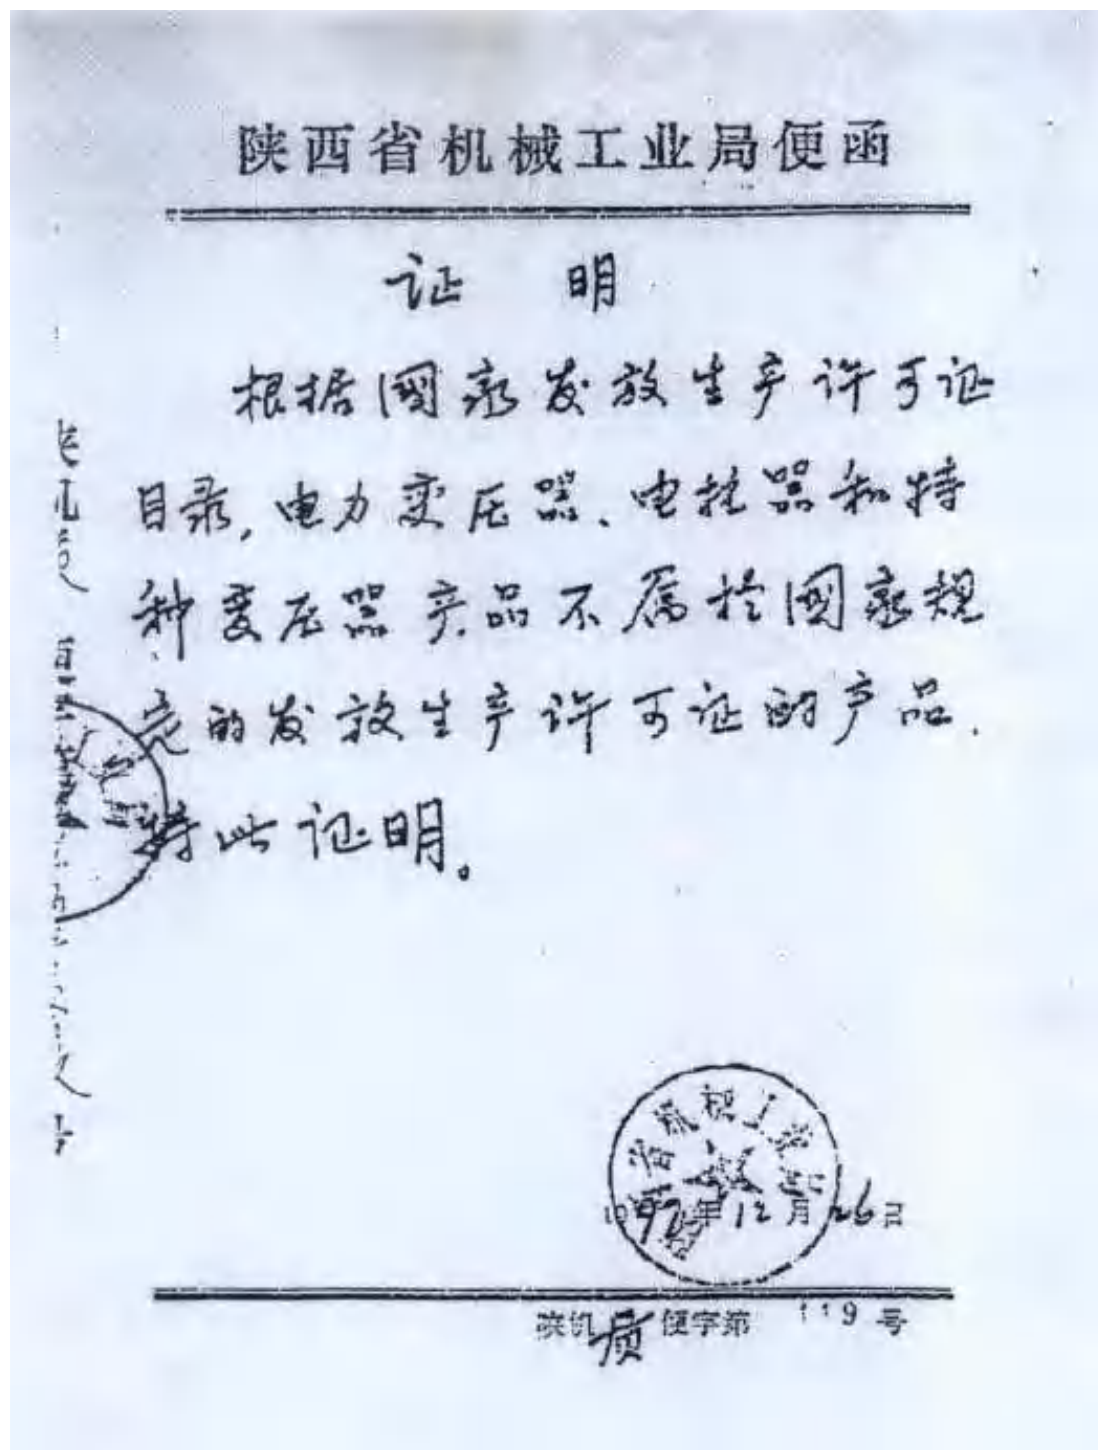 陕西省机械工业局便函
证 明
根据國家发放生产许可证
目录,电力变压器、电抗器和特
种变压器产品不属於國家规
定的发放生产许可证的产品.
特此证明。
省机械工业
年12月26日
陕机质便字第 119 号